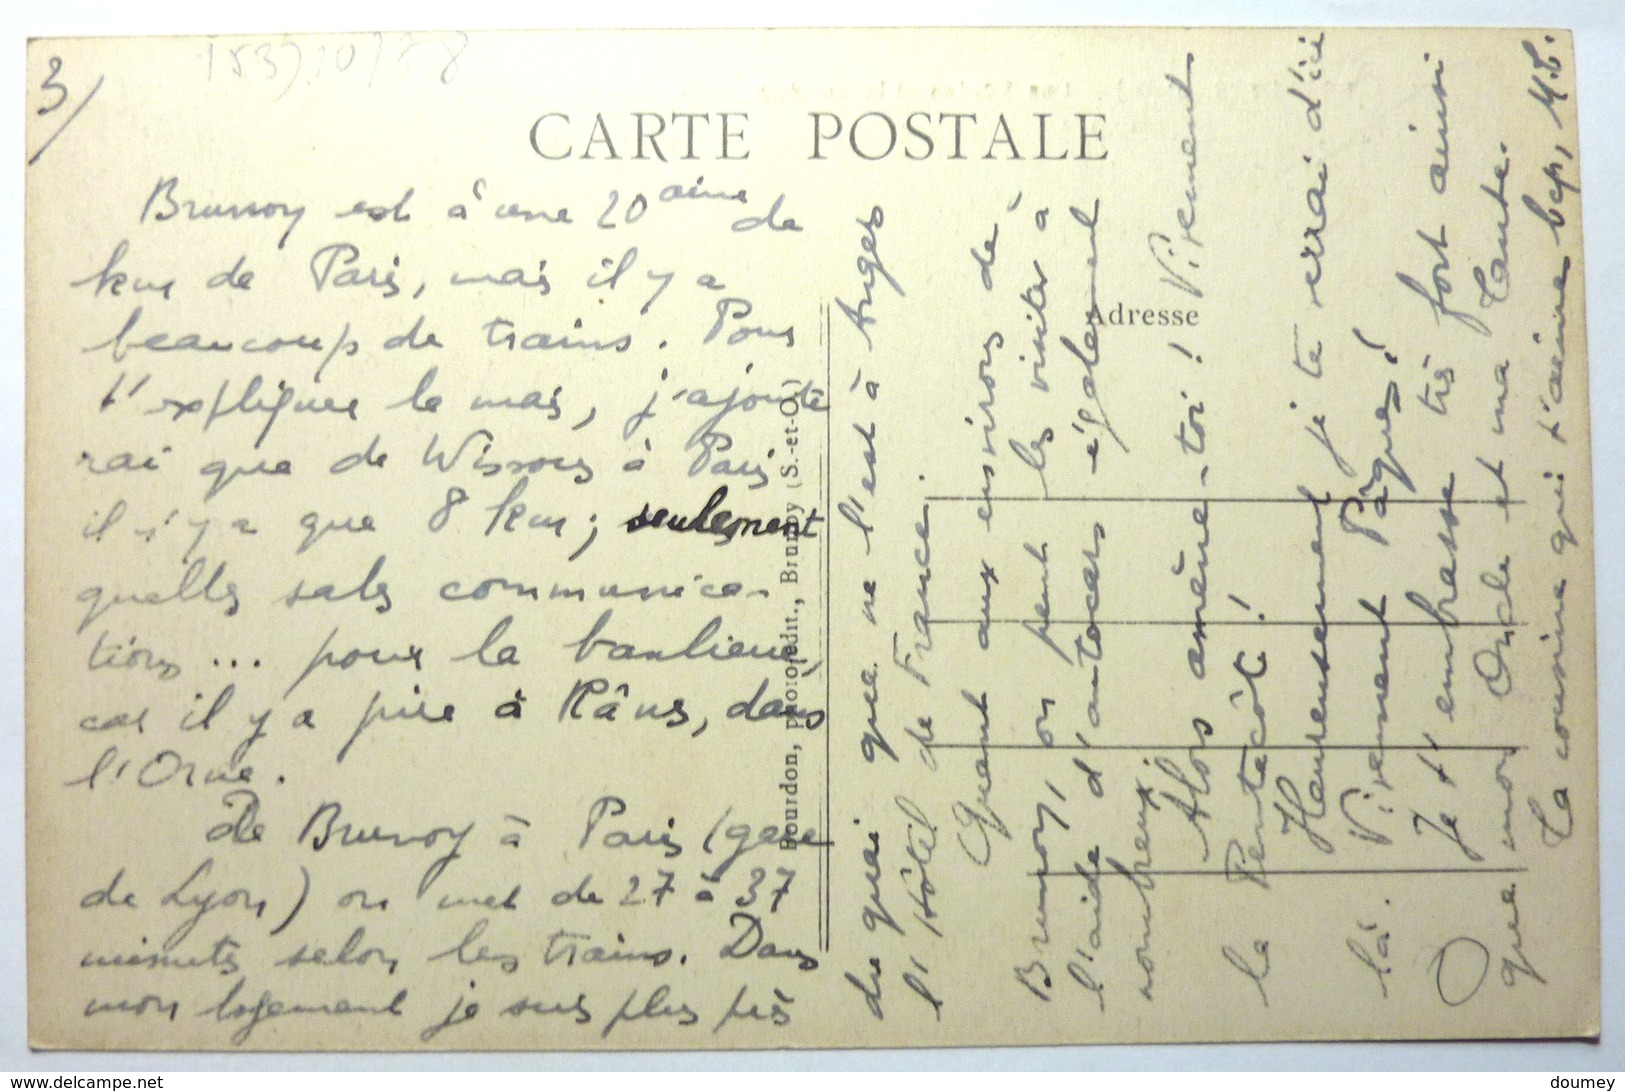 3/
CARTE POSTALE
Brunoy est à une 20aine de
km de Paris, mais il y a
beaucoup de trains. Pour
t'expliquer le mais, j'ajoute
rai que de Wissous à Paris
il n'y a que 8 km ; seulement
quelles sales communica-
tions... pour la banlieue,
car il y a pire à Râns, dans
l'Orne.
De Brunoy à Paris (gare
de Lyon) on met de 27 à 37
minutes selon les trains. Dans
mon logement je suis plus près
Bourdon, photo-édit., Brunoy (S.-et-O.)
Adresse
du quai que ne l'est à Anger
l'Hôtel de France.
Quant aux environs de
Brunoy, on peut les visiter à
l'aide d'autocars également
nombreux.
Alors amène-toi ! Vivement
la Pentecôt !
Heureusement je te verrai d'ici
là. Vivement Pâques !
Je t'embrasse très fort ainsi
que mon Oncle et ma Tante.
La cousine qui t'aime bcp, M.T.
www.delcampe.net
doumey